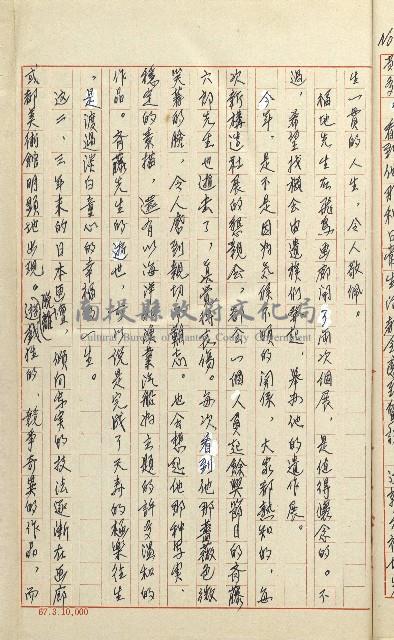 生一貫的人生，令人敬佩。
福地先生在飛鳥画廊開了兩次個展，是值得懷念的。不
過，希望找機会由遺族們發起，舉办他的遺作展。
今年，是不是因為气候的関係，大家都熟知的，每
次新構造社展的懇親会，都会一個人負起餘興節目的斉藤
六郎先生也逝去了，真覺得化傷。每次看到他那薔薇色微
笑著的臉，令人感到親切難忘。也会想起他那種写実、
穩定的素描，還有以海洋漁業汽船為主題的許多溫和的
作品。斉藤先生的逝世，可以說是完成了天寿的極樂往生
，是渡過潔白童心的幸福一生。
這二、三年来的日本画壇，傾向写実的技法逐漸在画廊
或都美術館明顯地出現。脱離遊戲性的、競爭奇異的作品，而
南投縣政府文化局
Cultural Bureau of Nantou County Government
67.3.10,000